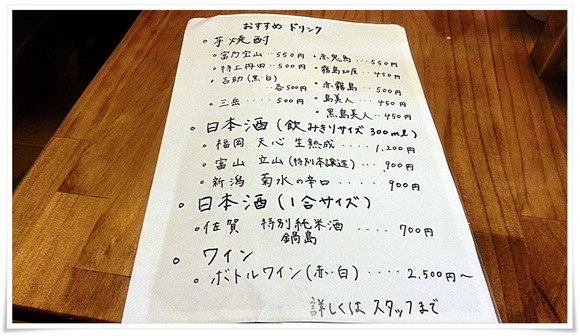 おすすめ ドリンク
○芋焼酎
○富乃宝山‥550円
○赤兎馬‥‥550円
○特上丹田‥500円
○吉助(黒・白)
各500円
○赤霧島‥‥500円
○三岳‥‥500円
○島美人‥‥450円
○黒島美人‥450円
○日本酒(飲みきりサイズ300ml)
○福岡 天心 生熟成‥‥1,200円
○富山 立山(特別本醸造)‥‥900円
○新潟 菊水の辛口‥‥‥900円
○日本酒(1合サイズ)
○佐賀 特別純米酒
鍋島 ‥‥700円
○ワイン
○ボトルワイン(赤・白)‥‥2,500円～
詳しくは スタッフまで